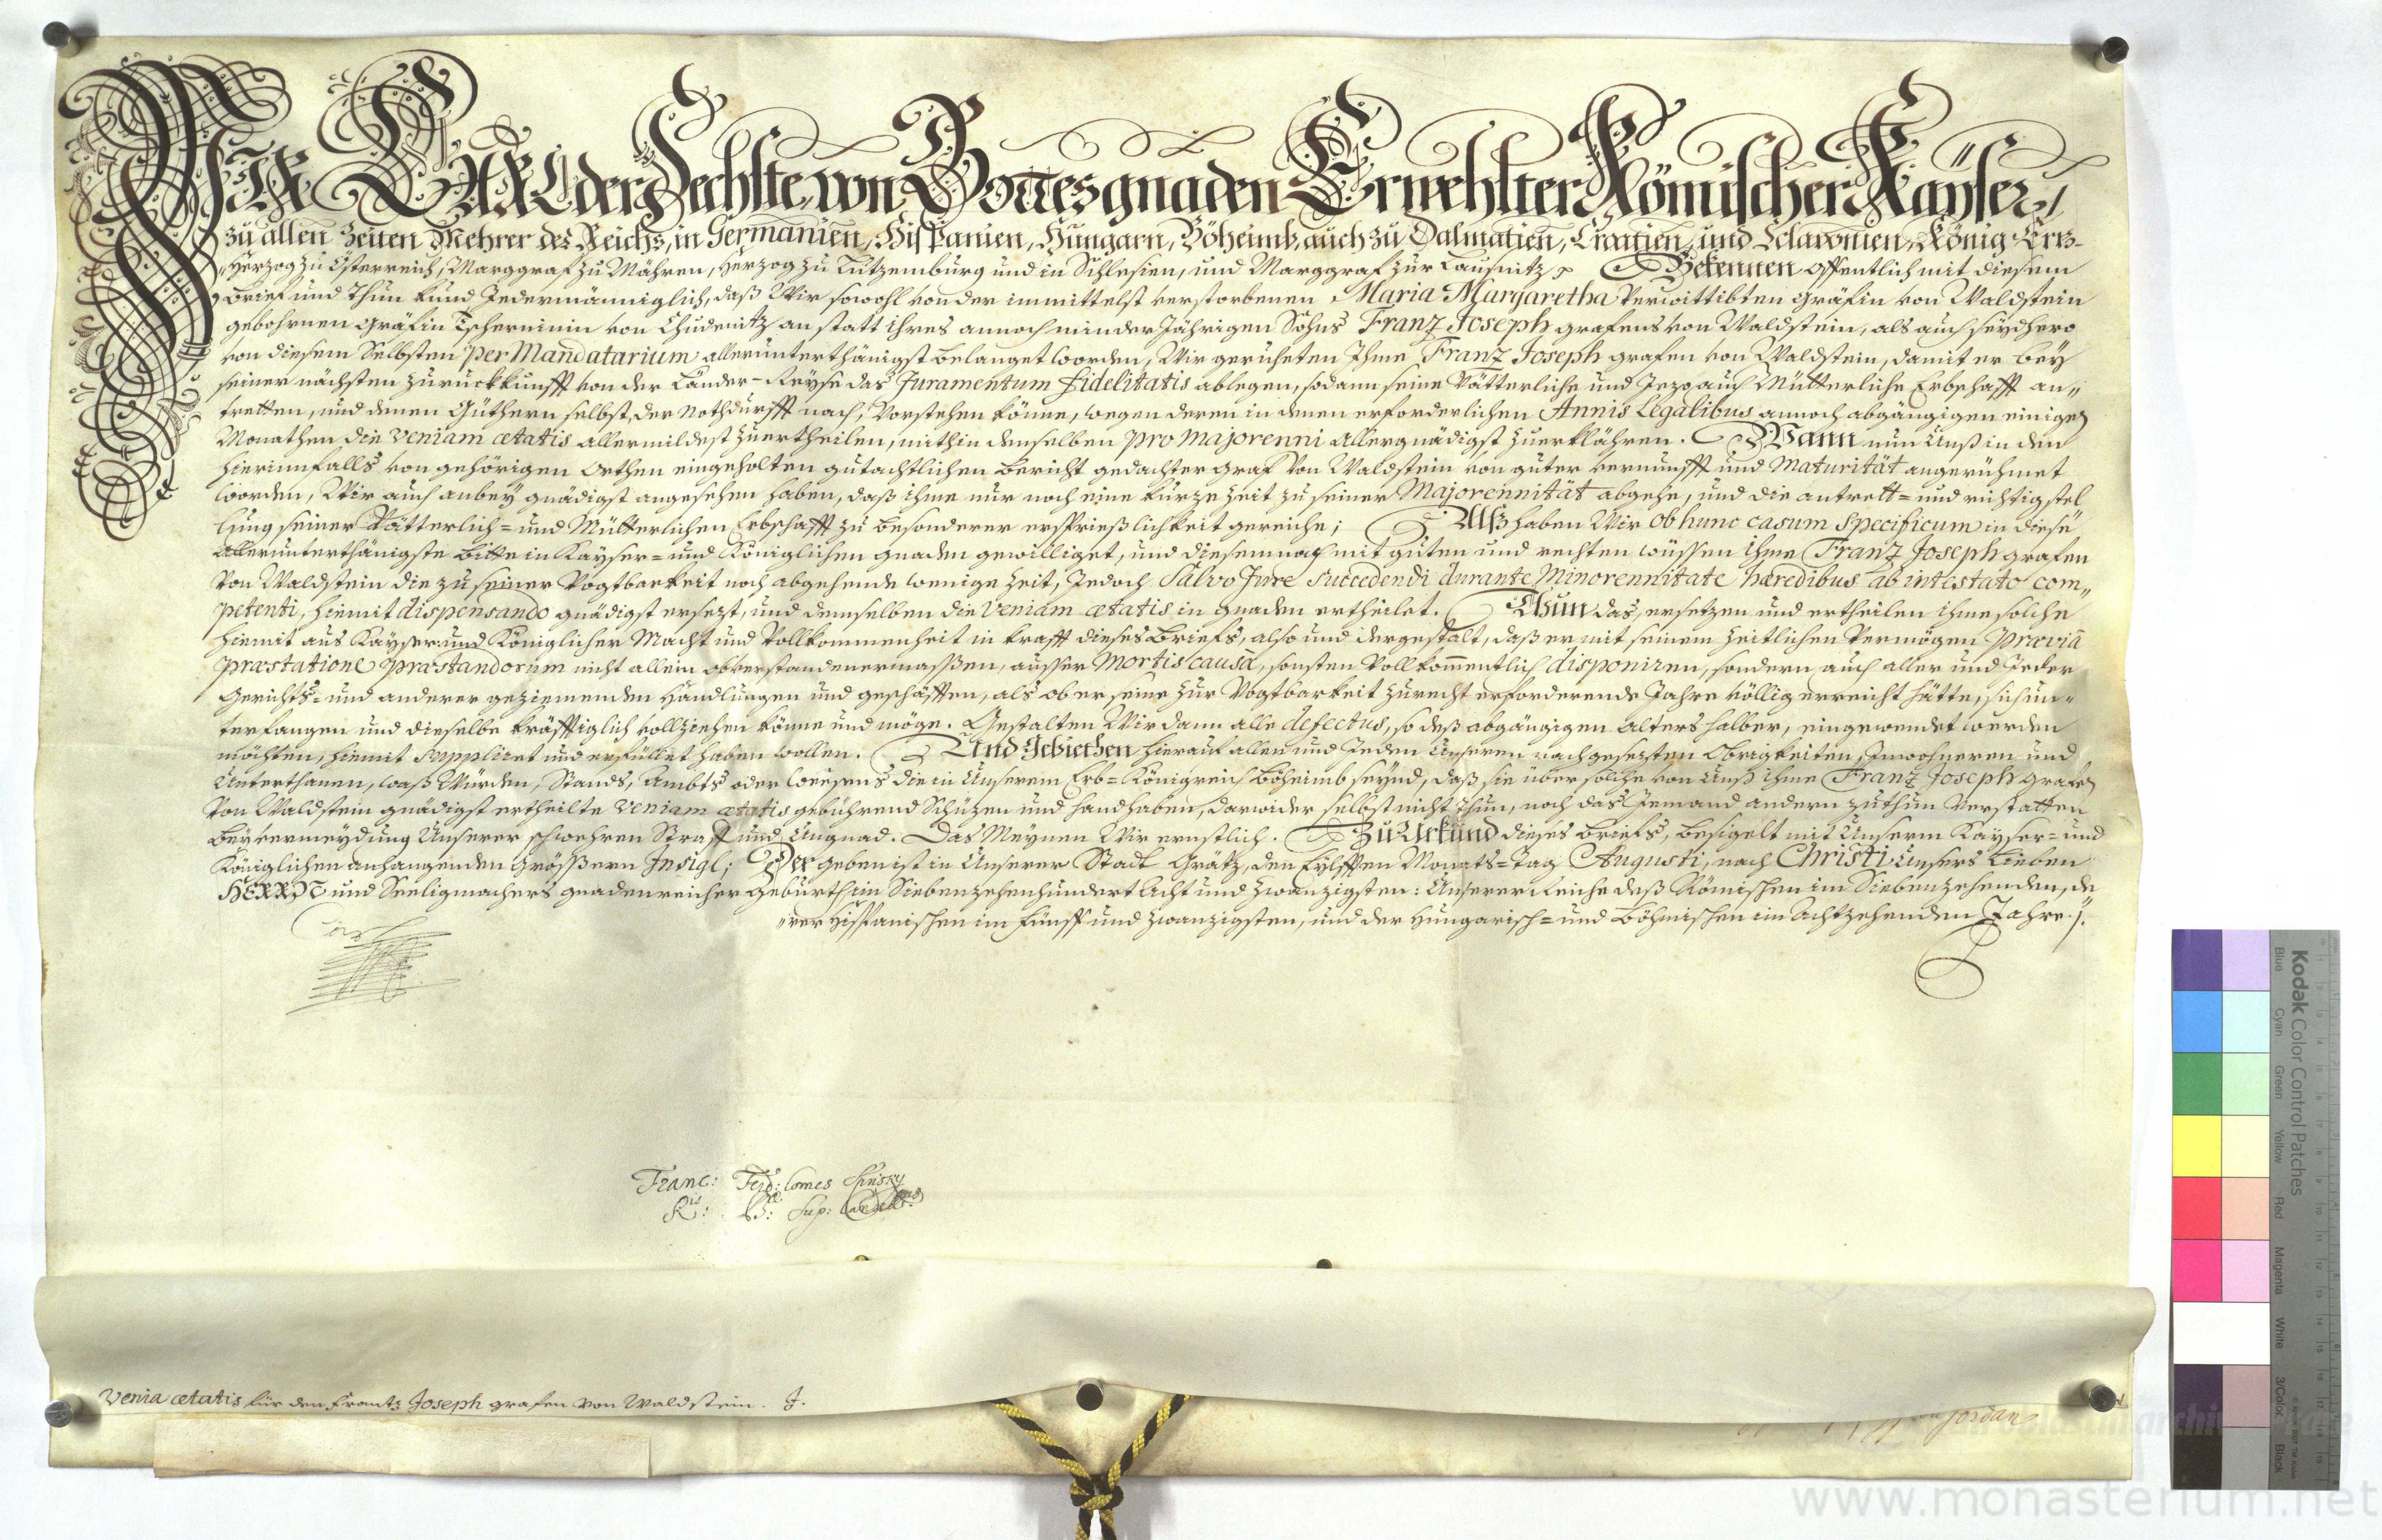 WIR CARL der Sechste, von Gottes gnaden Erwehlter Römischer Kayser,
zu allen Zeiten Mehrer des Reichs, in Germanien, Hispanien, Hungarn, Böheimb, auch zu Dalmatien, Croatien, und Sclavonien, König, Ertz-
Hertzog zu Österreich, Marggraf zu Mähren, Hertzog zu Lützemburg und in Schlesien, und Marggraf zur Lausnitz Bekennen offentlich mit diesem
Brief und Thun kund Jedermänniglich, daß Wir sowohl von der immittelst verstorbenen Maria Margaretha Verwittibten Gräfin von Waldstein
gebohrnen Gräfin Tscherninin von Chudenitz an statt ihres annoch minder Jährigen Sohns Franz Joseph grafens von Waldstein, als auch seydhero
von diesem Selbsten per Mandatarium allerunterthänigst belanget worden, Wir geruheten Ihme Franz Joseph grafen von Waldstein, damit er bey
seiner nächsten zuruckkunfft von der Länder-Reyse das Juramentum fidelitatis ablegen, sodann seine Vätterliche und Jezo auch Mütterliche Erbschafft an„
tretten, und denen Güthern selbst, der Nothdurfft nach, Vorstehen könne, wegen deren in denen erforderlichen Annis Legalibus annoch abgängigen einigen
Monathen die veniam ætatis allermildest zu ertheilen, mithin denselben pro majorenni Allergnädigst zu erklähren. Wann nun Unß in den
hierinnfalls von gehörigen Orthen eingeholten gutachtlichen Bericht gedachter Graf von Waldstein von guter Vernunfft und Maturität angerühmet
worden, Wir auch anbey gnädigst angesehen haben, daß ihme nur noch eine kurze Zeit zu seiner Majorennität abgehe, und die antrett- und richtigstel
lung seiner Vätterlich- und Mütterlichen Erbschafft zu besonderer ersprießlichkeit gereiche; Alß haben Wir ob hunc casum specificum in diese
allerunterthänigste bitte in Kayser- und Königlichen gnaden gewilliget, und diesemnach mit guten und rechten wüssen ihme Franz Joseph grafen
von Waldstein die zu seiner Vogtbarkeit noch abgehende wenige Zeit, Jedoch Salvo Jure succedendi durante Minorennitate hæredibus ab intestato com„
petenti, hiemit dispensando gnädigst ersezt, und demselben die veniam ætatis in gnaden ertheilet. Thun das, ersetzen und ertheilen ihme solche
hiemit aus Kayser- und Königlicher Macht und Vollkommenheit in krafft dieses Briefs, also und dergestalt, daß er mit seinem zeitlichen Vermögen prævia
præstatione præstandorum nicht allein obverstandenermassen, ausser mortis causa, sonsten Vollkommentlich disponiren, sondern auch aller und Jeder
Gerichts- und anderer geziemenden Handlungen und geschäfften, als ob er seine zur Vogtbarkeit zu recht erforderende Jahre völlig erreicht hätte, sich un-
terfangen und dieselbe kräfftiglich vollziehen könne und möge. Gestalten Wir dann alle defectus, so deß abgängigen alters halber, eingewendet werden
möchten, hiemit suppliret und erfüllet haben wollen. Und Gebiethen hierauf allen und Jeden Unseren nachgesezten Obrigkeiten, Inwohneren und
Unterthanen, waß Würden, Stands, Ambts oder weesens die in Unserem Erb-Königreich Böheimb seynd, daß sie über solche von Unß ihme Franz Joseph grafen
von Waldstein gnädigst ertheilte veniam ætatis gebührend Schützen und handhaben, darwider selbst nicht thun, noch das Jemand andern zu thun Verstatten
bey vermeydung Unserer schwehren Straff und Ungnad. Das Meynen Wir ernstlich. Zu Urkund dieses Briefs, besigelt mit Unserm Kayser- und
Königlichen anhangenden Grössern Insigl; Der geben ist in Unserer Stadt Grätz, den Eylfften Monats-Tag Augusti, nach Christi Unsers Lieben
HERRN und Seeligmachers gnadenreicher Geburth im Siebenzehenhundert Acht und zwanzigsten: Unserer Reiche deß Römischen im Siebenzehenden, de
„rer Hispanischen im Fünff und zwanzigsten, und der Hungarisch- und Böhmischen im Achtzehenden Jahre.
Carl
Franc: Ferd: Comes Kinsky
Ris: Bæ: Sup: Cancellus
Venia ætatis für den Frantz Joseph grafen von Waldstein.
Jordan
Kodak Color Control Patches
Blue Cyan Green Yellow Red Magenta White 3/Color Black
www.monasterium.net